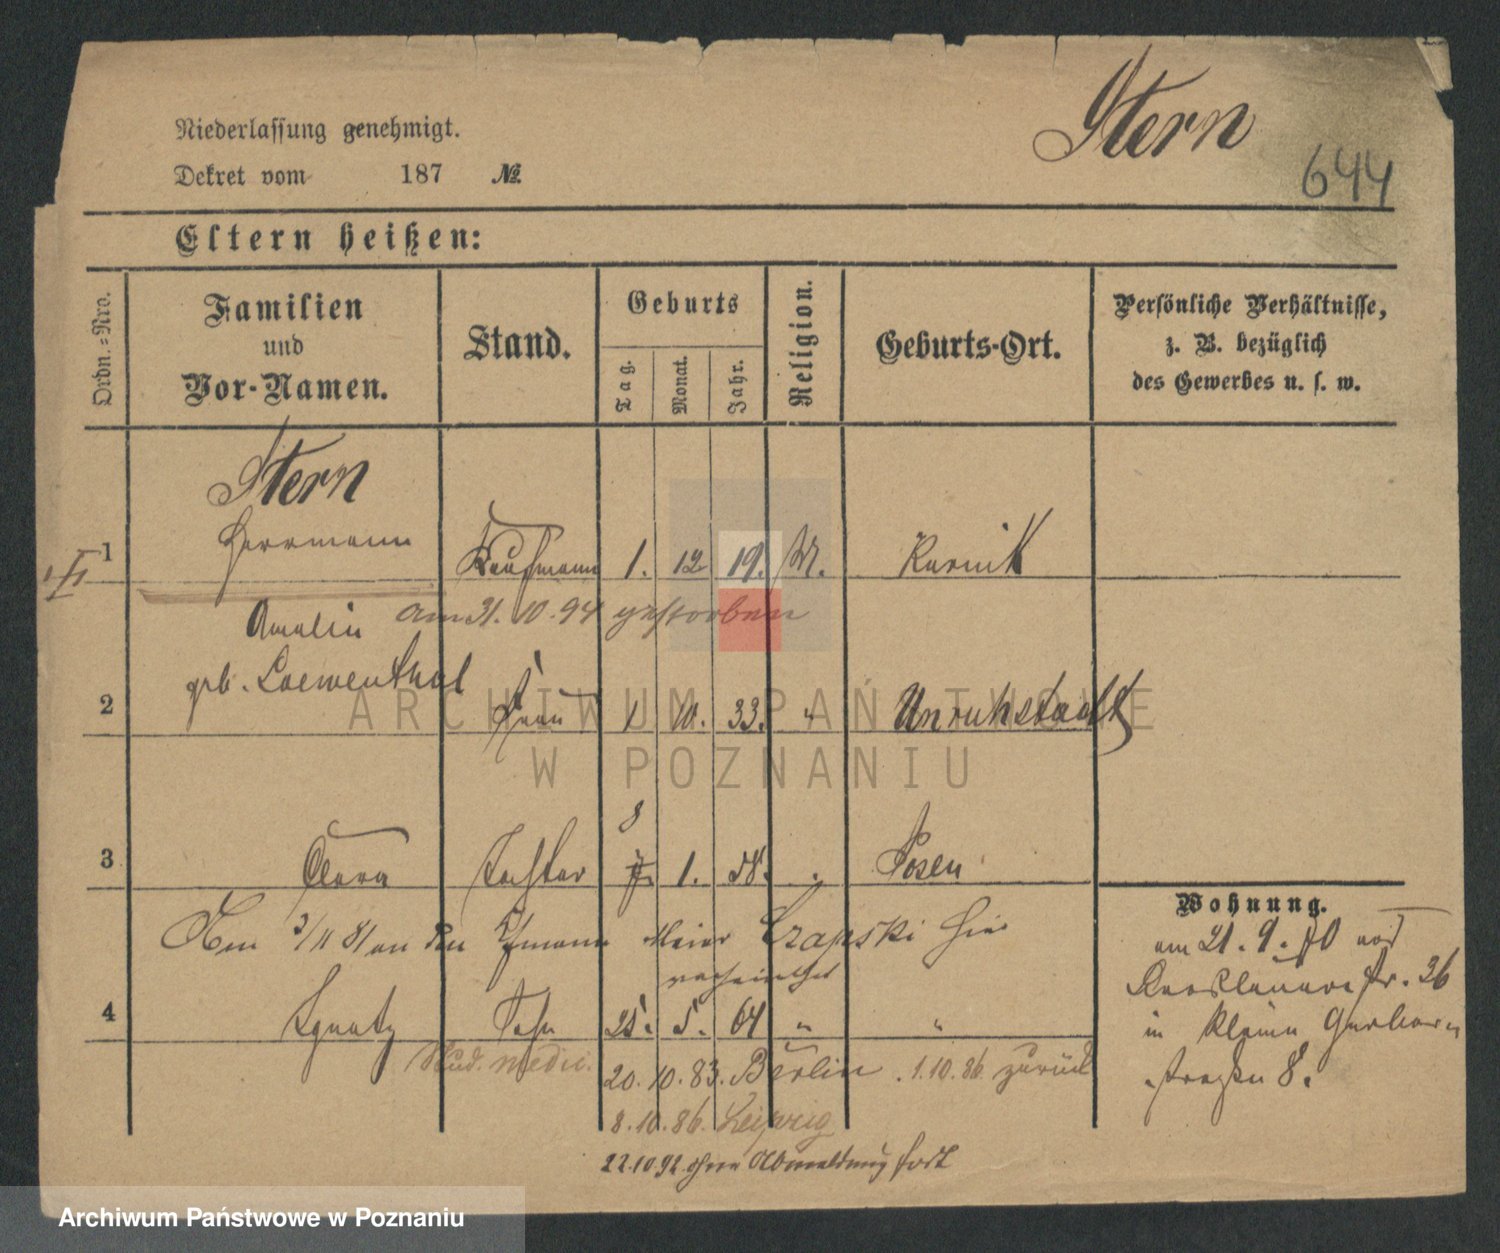 Stern
644
Niederlassung genehmigt.
Dekret vom 187 №.
Eltern heißen:
Ordn.=Nro.
Familien
und
Vor-Namen.
Stand.
Geburts
Tag.
Monat.
Jahr.
Religion.
Geburts-Ort.
Persönliche Verhältnisse,
z. B. bezüglich
des Gewerbes u. s. w.
Stern
1 Herrmann Kaufmann 1. 12 19. M. Kurnik
am 31. 10. 94 gestorben
Amalie
geb. Loewenthal
2 Frau 1 10. 33. " Unruhstadt
8
3 Clara Tochter 7. 1. 58. " Posen
Am 2/11 81 an den Kfmann Meier Czapski hier
verheirathet
4 Ignatz Sohn 25. 5. 64 " "
stud. medic. 20. 10. 83. Berlin . 1. 10. 86 zurück
8. 10. 86. Leipzig
22.10.92. ohne Abmeldung fort
Wohnung.
am 21. 9. 70 von
Breslauerstr. 36
in kleine Gerber-
strasse 8.
ARCHIWUM PAŃSTWOWE
W POZNANIU
Archiwum Państwowe w Poznaniu